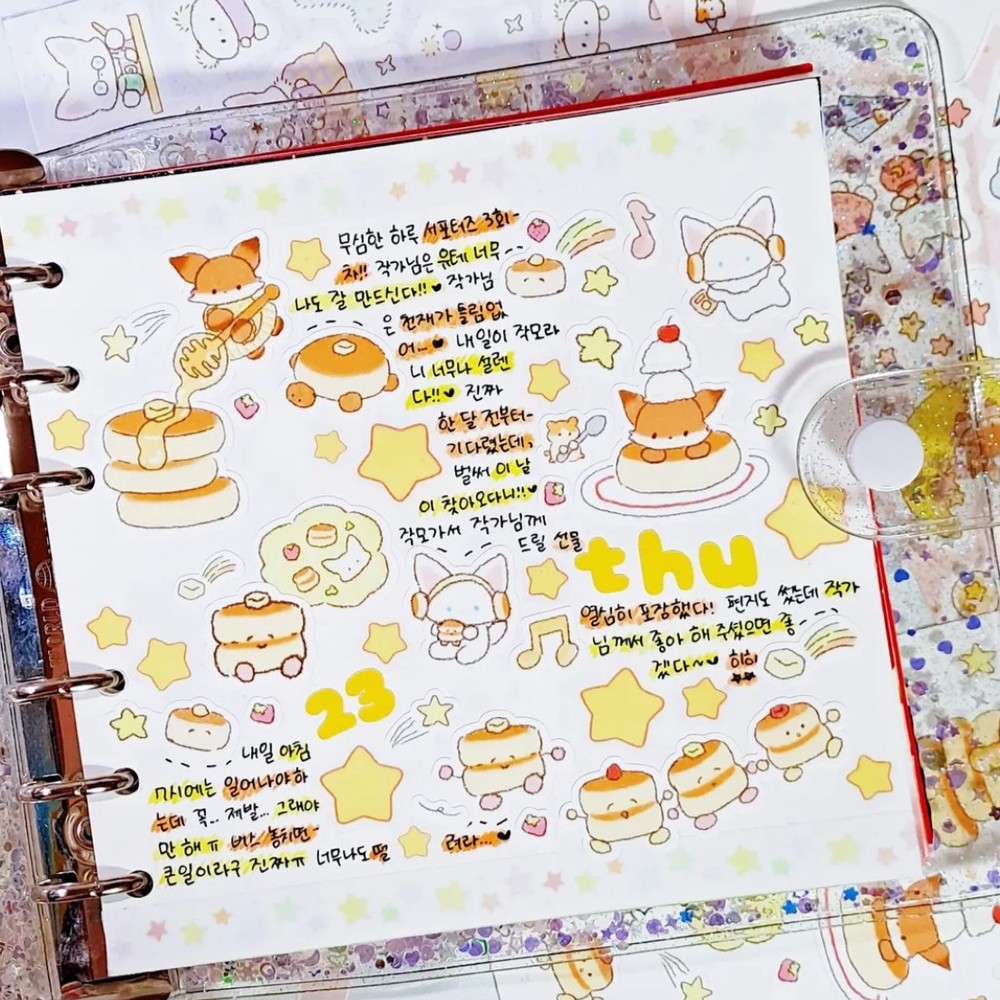 무심한 하루 서포터즈 3회-
차!! 작가님은 유테 너무
나도 잘 만드신다!! 작가님
은 천재가 틀림없
어... 내일이 작모라
니 너무나 설렌
다!! 진짜
한 달 전부터
기다렸는데,
벌써 이 날
이 찾아오다니!!
작모가서 작가님께
드릴 선물
thu
열심히 포강했다! 편지도 썼는데 작가
님께서 좋아 해 주셨으면 좋-
겠다~ 히히
23
내일 아침
7시에는 일어나야하
는데 꼭.. 제발... 그래야
만 해ㅠ 버스 놓치면-
큰일이라구 진짜ㅠ 너무나도 떨
려라...